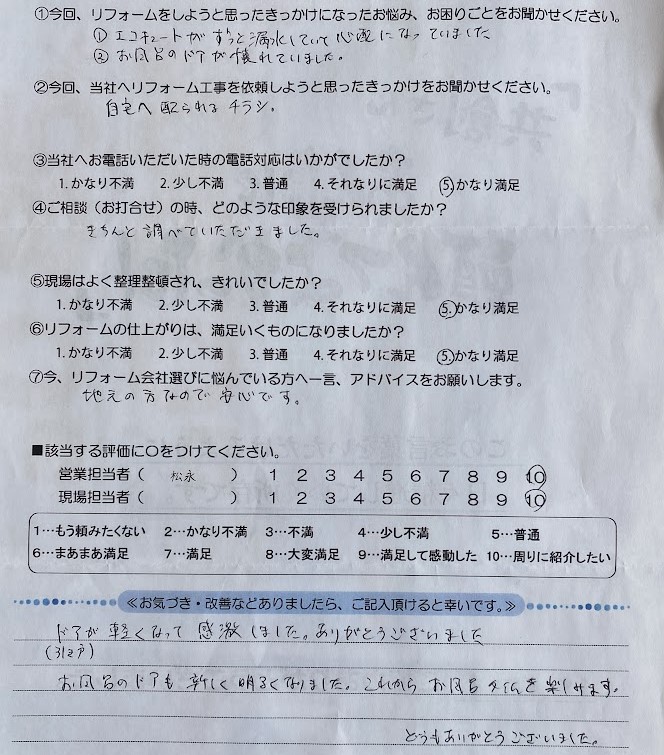 ①今回、リフォームをしようと思ったきっかけになったお悩み、お困りごとをお聞かせください。
① エコキュートがずっと漏水していて心配になっていました
② お風呂のドアが壊れていました。
②今回、当社へリフォーム工事を依頼しようと思ったきっかけをお聞かせください。
自宅へ配られるチラシ。
③当社へお電話いただいた時の電話対応はいかがでしたか？
1.かなり不満 2.少し不満 3.普通 4.それなりに満足 5.かなり満足
④ご相談（お打合せ）の時、どのような印象を受けられましたか？
きちんと調べていただきました。
⑤現場はよく整理整頓され、きれいでしたか？
1.かなり不満 2.少し不満 3.普通 4.それなりに満足 5.かなり満足
⑥リフォームの仕上がりは、満足いくものになりましたか？
1.かなり不満 2.少し不満 3.普通 4.それなりに満足 5.かなり満足
⑦今、リフォーム会社選びに悩んでいる方へ一言、アドバイスをお願いします。
地元の方なので安心です。
■該当する評価に○をつけてください。
営業担当者（ 松永 ） 1 2 3 4 5 6 7 8 9 10
現場担当者（ ） 1 2 3 4 5 6 7 8 9 10
1…もう頼みたくない 2…かなり不満 3…不満 4…少し不満 5…普通
6…まあまあ満足 7…満足 8…大変満足 9…満足して感動した 10…周りに紹介したい
≪お気づき・改善などありましたら、ご記入頂けると幸いです。≫
ドアが軽くなって感激しました。ありがとうございました
(引き戸)
お風呂のドアも新しく明るくなりました。これからお風呂タイムを楽しみます。
どうもありがとうございました。